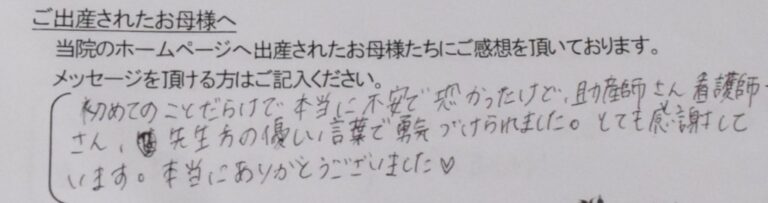 ご出産されたお母様へ
当院のホームページへ出産されたお母様たちにご感想を頂いております。
メッセージを頂ける方はご記入ください。
初めてのことだらけで、本当に不安で恐かったけど、助産師さん看護師
さん、先生方の優しい言葉で勇気づけられました。とても感謝して
います。本当にありがとうございました♡